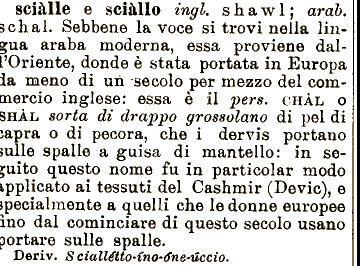 sciàlle e sciàllo ingl. shawl; arab.
schal. Sebbene la voce si trovi nella lin-
gua araba moderna, essa proviene dal-
l'Oriente, donde è stata portata in Europa
da meno di un secolo per mezzo del com-
mercio inglese: essa è il pers. CHÂL o
SHÂL sorta di drappo grossolano di pel di
capra o di pecora, che i dervis portano
sulle spalle a guisa di mantello: in se-
guito questo nome fu in particolar modo
applicato ai tessuti del Cashmir (Devic), e
specialmente a quelli che le donne europee
fino dal cominciare di questo secolo usano
portare sulle spalle.
Deriv. Scialletto-íno-óne-úccio.